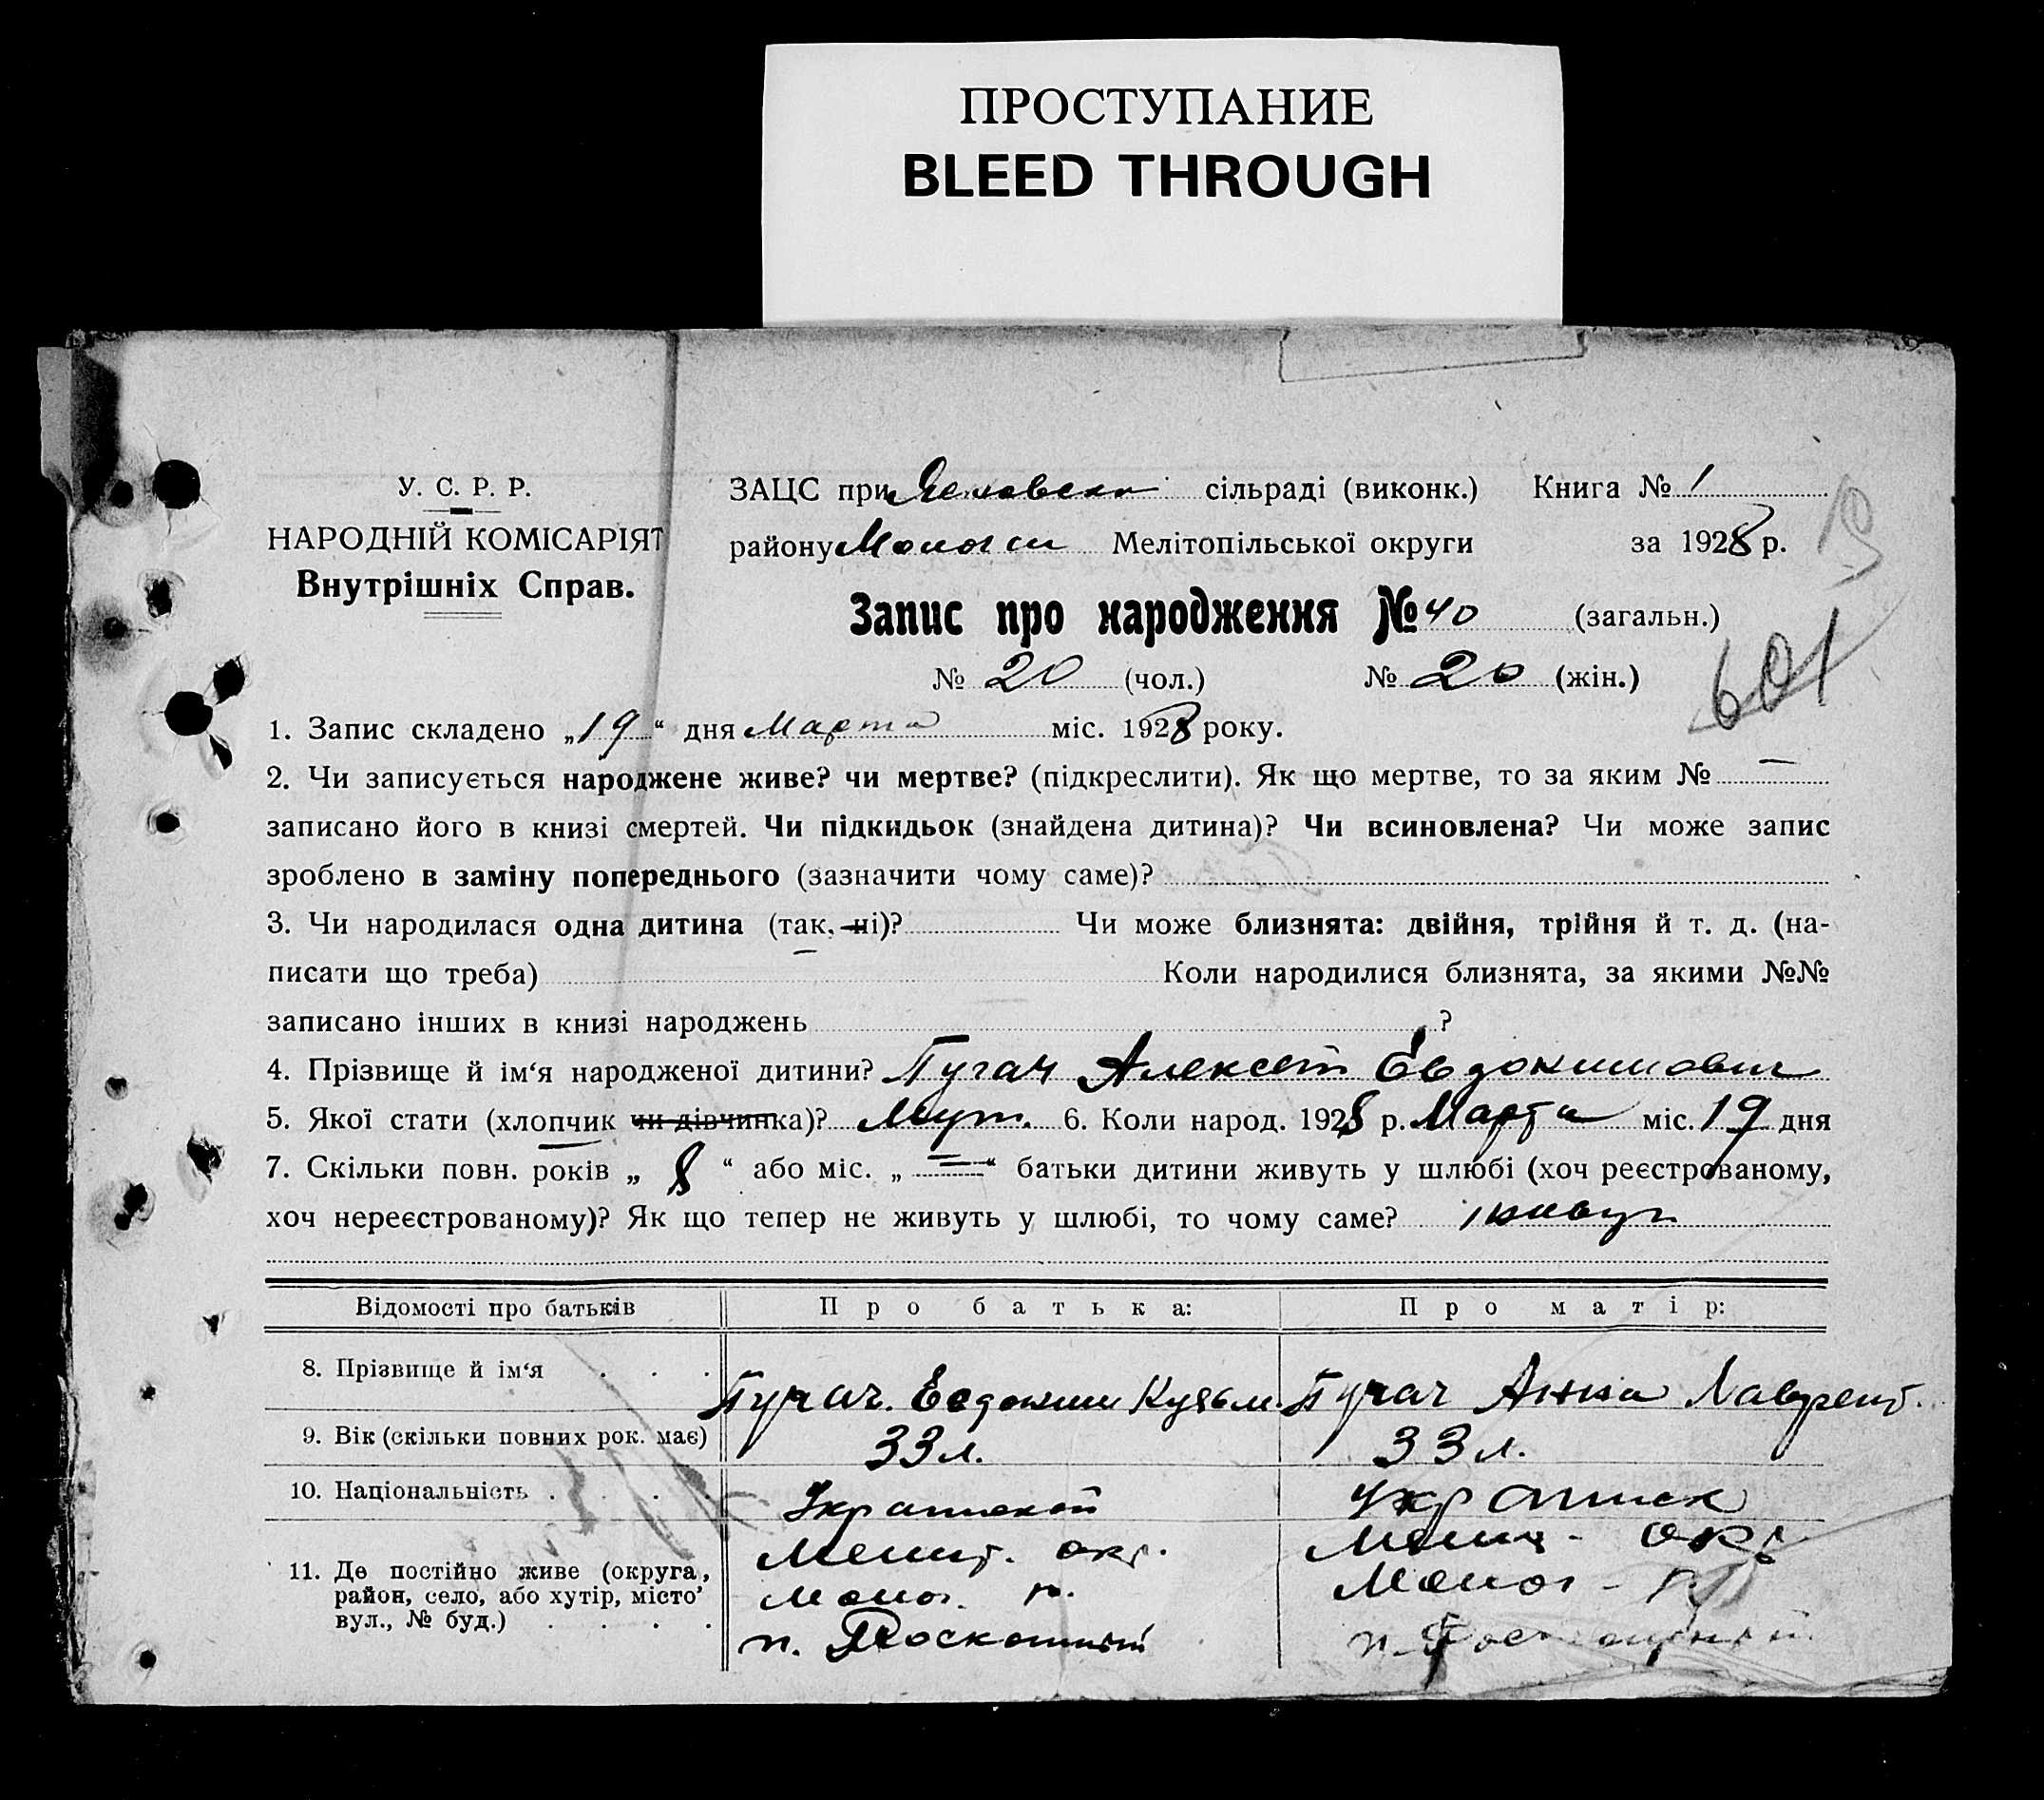 ПРОСТУПАНИЕ
BLEED THROUGH
У. С. Р. Р.
НАРОДНІЙ КОМІСАРІЯТ
Внутрішніх Справ.
ЗАЦС при сільраді (виконк.) Книга № 1
району Молоч Мелітопільської округи за 1928 р.
Запис про народження № 40 (загальн.)
601
№ 20 (чол.) № 20 (жін.)
1. Запис складено „19“ дня Марта міс. 1928 року.
2. Чи записується народжене живе? чи мертве? (підкреслити). Як що мертве, то за яким № —
записано його в книзі смертей. Чи підкидьок (знайдена дитина)? Чи всиновлена? Чи може запис
зроблено в заміну попереднього (зазначити чому саме)?
3. Чи народилася одна дитина (так, ні)? Чи може близнята: двійня, трійня й т. д. (на-
писати що треба) Коли народилися близнята, за якими №№
записано інших в книзі народжень ?
4. Прізвище й ім‘я народженої дитини? Пугач Алексей Евдокимович
5. Якої стати (хлопчик чи дівчинка)? Муж. 6. Коли народ. 1928 р. Марта міс. 19 дня
7. Скільки повн. років „ 8 “ або міс. „ = “ батьки дитини живуть у шлюбі (хоч реєстрованому,
хоч нереєстрованому)? Як що тепер не живуть у шлюбі, то чому саме? живут
Відомості про батьків Про батька: Про матір:
8. Прізвище й ім‘я . . . Пугач Евдоким Кузьм. Пугач Анна Лаврент.
9. Вік (скільки повних рок. має) 33 л. 33 л.
10. Національність . . . . Украинск
11. Де постійно живе (округа, район, село, або хутір, місто, вул., № буд.) . . . .
Мелит. окр. Мелит. окр.
Молоч. р. Молоч. р.
п. Роскошный п.